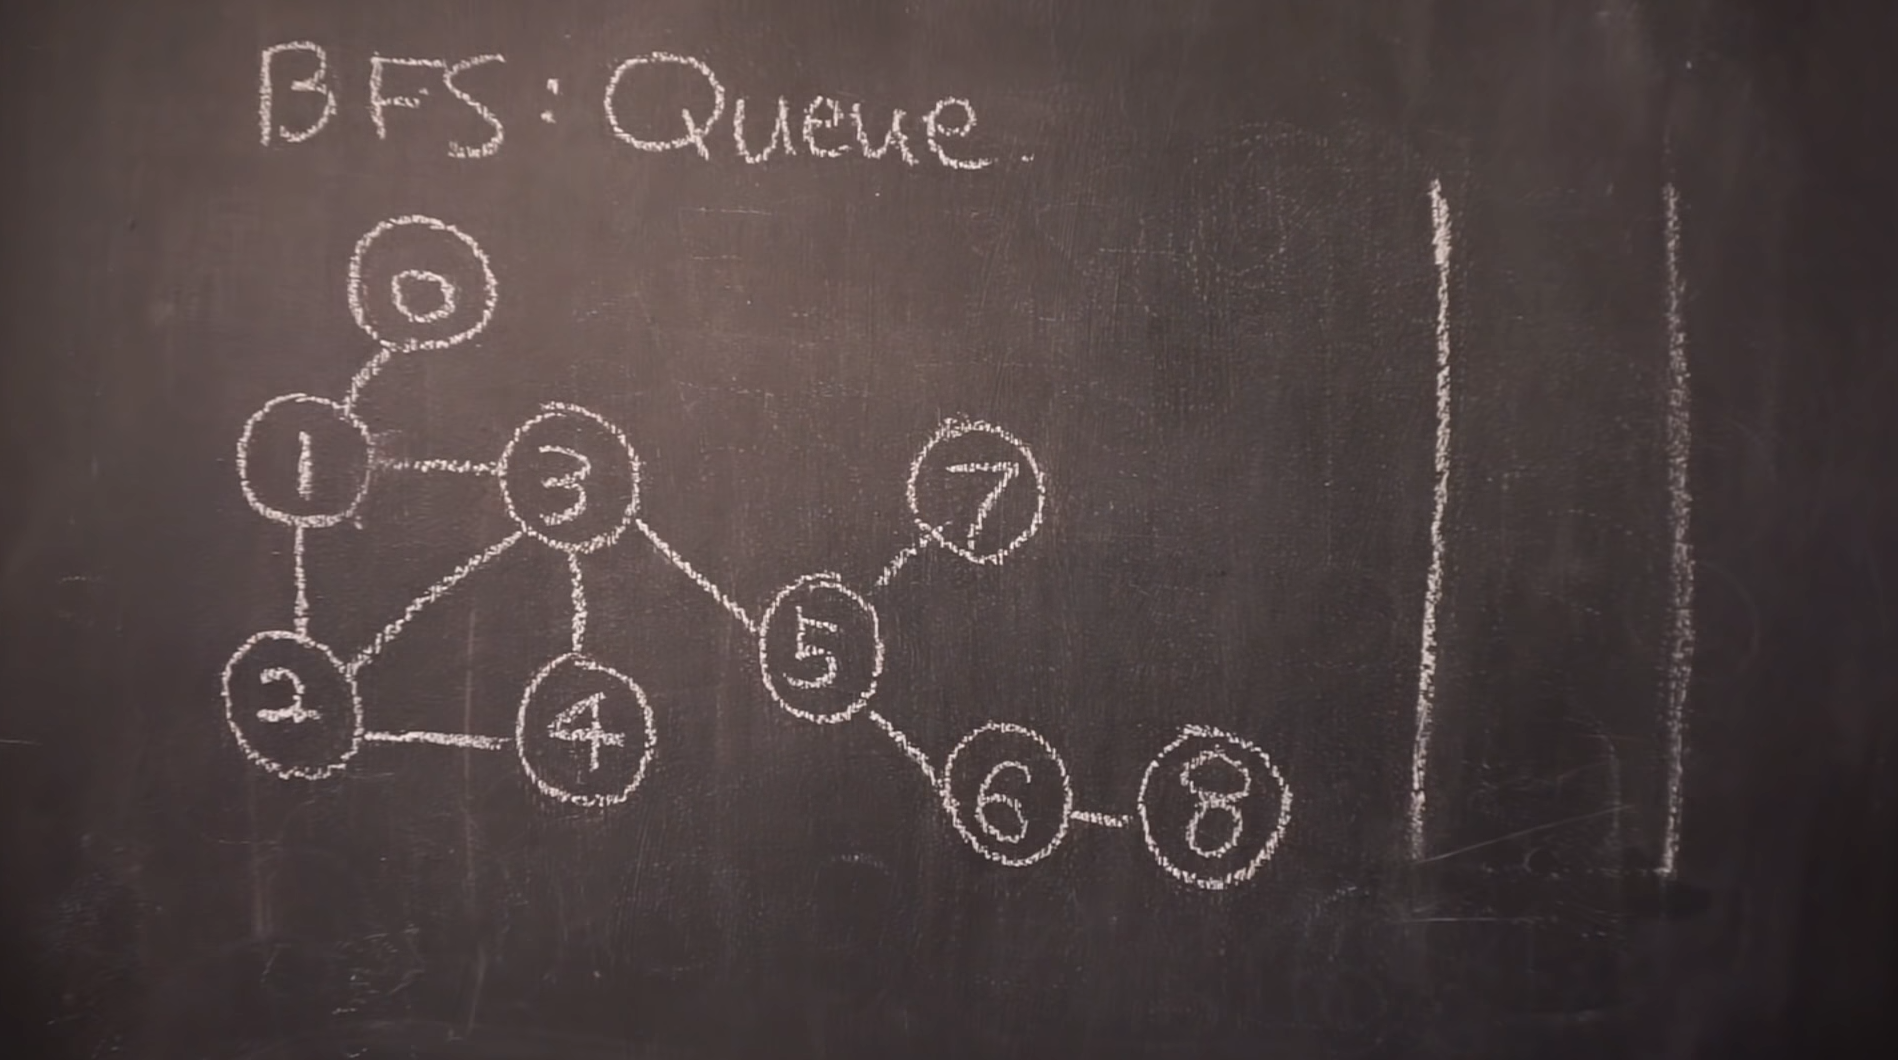 BFS: Queue.
0
1 3 7
5
2 4
6 8